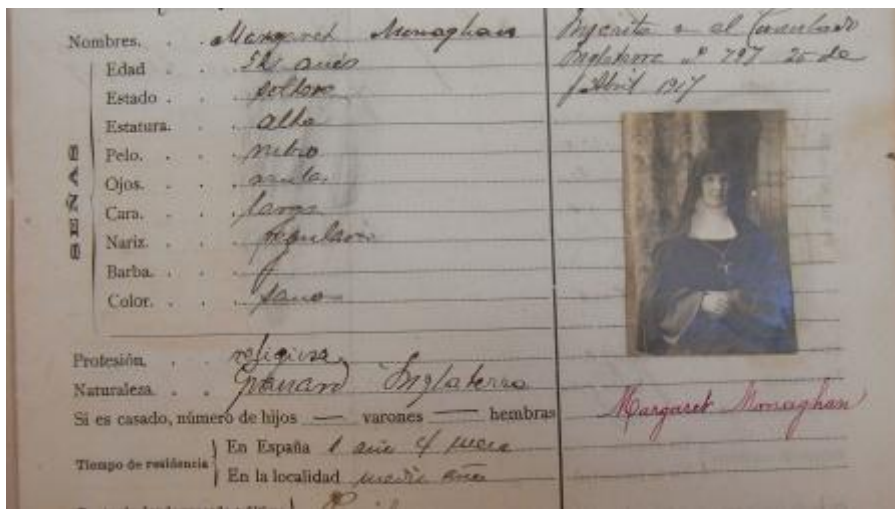 Nombres. . . Margaret Monaghan
Edad . . años
Estado . . soltera
Estatura. . . alta
Pelo. . . rubio
Ojos. . . azules
Cara. . . larga
Nariz. . . regular
Barba. . .
Color. . . sano
SEÑAS
Profesión, . . religiosa
Naturaleza. . . Granard Inglaterra
Si es casado, número de hijos — varones — hembras
Tiempo de residencia
En España 1 año 4 meses
En la localidad medio año
Inscrita en el Consulado
Inglaterra nº 797 20 de
Abril 1917
Margaret Monaghan